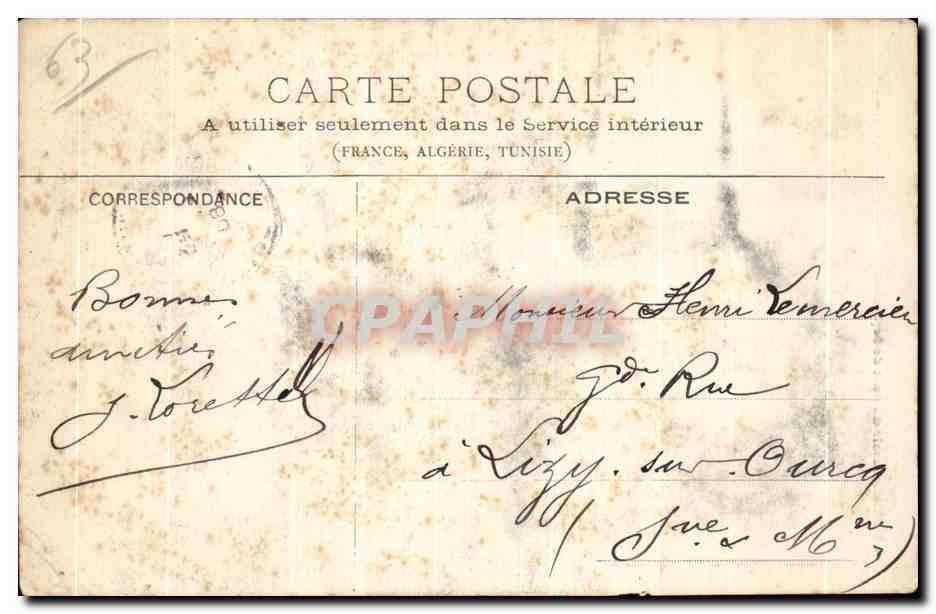 63
CARTE POSTALE
A utiliser seulement dans le Service intérieur
(FRANCE, ALGÉRIE, TUNISIE)
CORRESPONDANCE
Bonnes
amitiés
J. Lorettel
ADRESSE
Monsieur Henri Lemercier
Gde Rue
à Lizy-sur-Ourcq
(Sne & Mne)
CPAPHIL